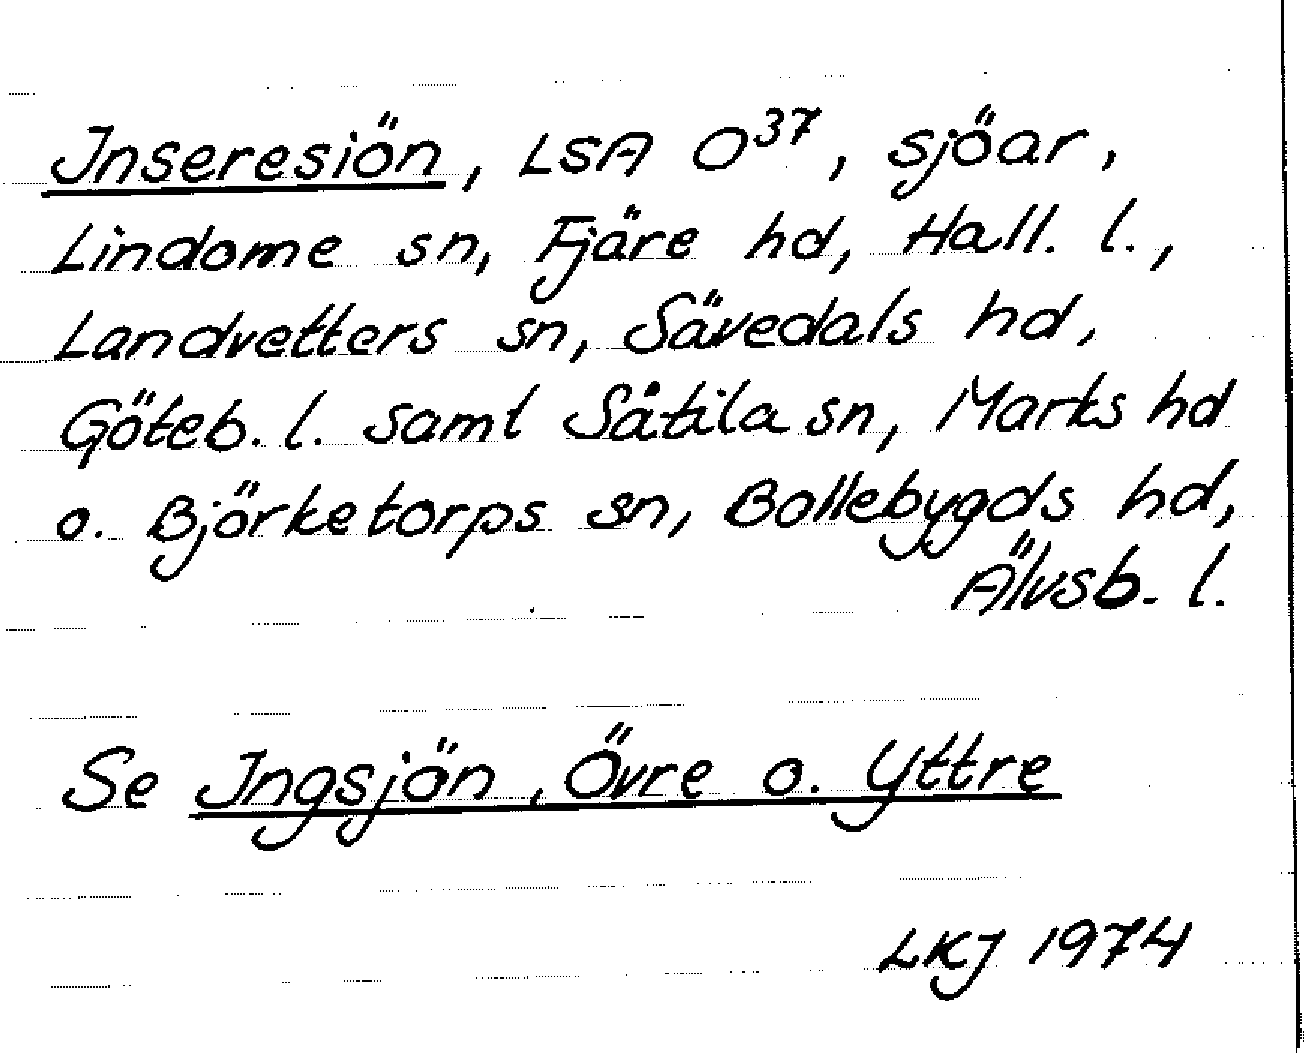 Inseresiön, LSA O37, sjöar,
Lindome sn, Fjäre hd, Hall. l.,
Landvetters sn, Sävedals hd,
Göteb. l. samt Såtila sn, Marks hd
o. Björketorps sn, Bollebygds hd,
Älvsb. l.
Se Ingsjön, Övre o. Yttre
LKJ 1974